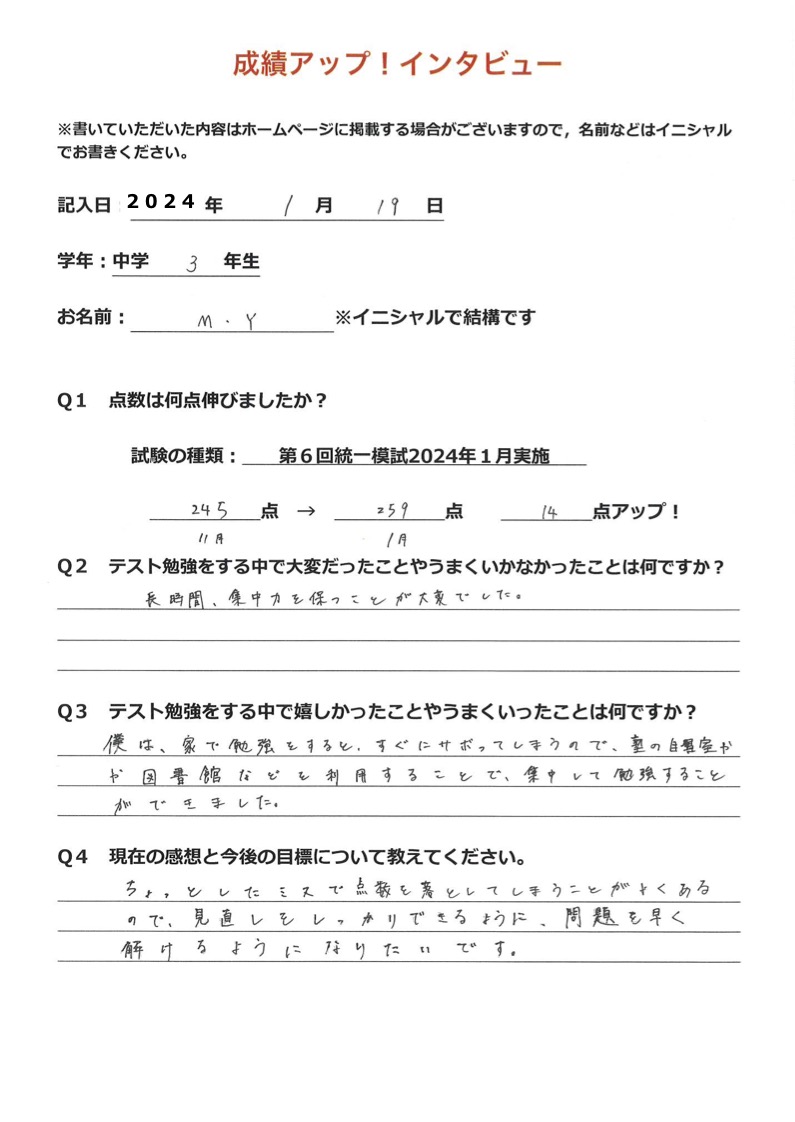 成績アップ！インタビュー
※書いていただいた内容はホームページに掲載する場合がございますので，名前などはイニシャル
でお書きください。
記入日 2024 年 1 月 19 日
学年：中学 3 年生
お名前： M・Y ※イニシャルで結構です
Q１ 点数は何点伸びましたか？
試験の種類： 第６回統一模試2024年１月実施
245 点 → 259 点 14 点アップ！
11月 1月
Q２ テスト勉強をする中で大変だったことやうまくいかなかったことは何ですか？
長時間、集中力を保つことが大変でした。
Q３ テスト勉強をする中で嬉しかったことやうまくいったことは何ですか？
僕は、家で勉強をすると、すぐにサボってしまうので、塾の自習室や
や図書館などを利用することで、集中して勉強すること
ができました。
Q４ 現在の感想と今後の目標について教えてください。
ちょっとしたミスで点数を落としてしまうことがよくある
ので、見直しをしっかりできるように、問題を早く
解けるようになりたいです。